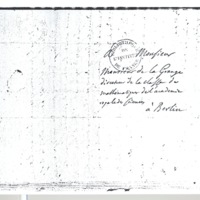 A Monsieur
Monsieur de la Grange
directeur de la classe de
mathematique de l'academie
royale des sciences
à Berlin